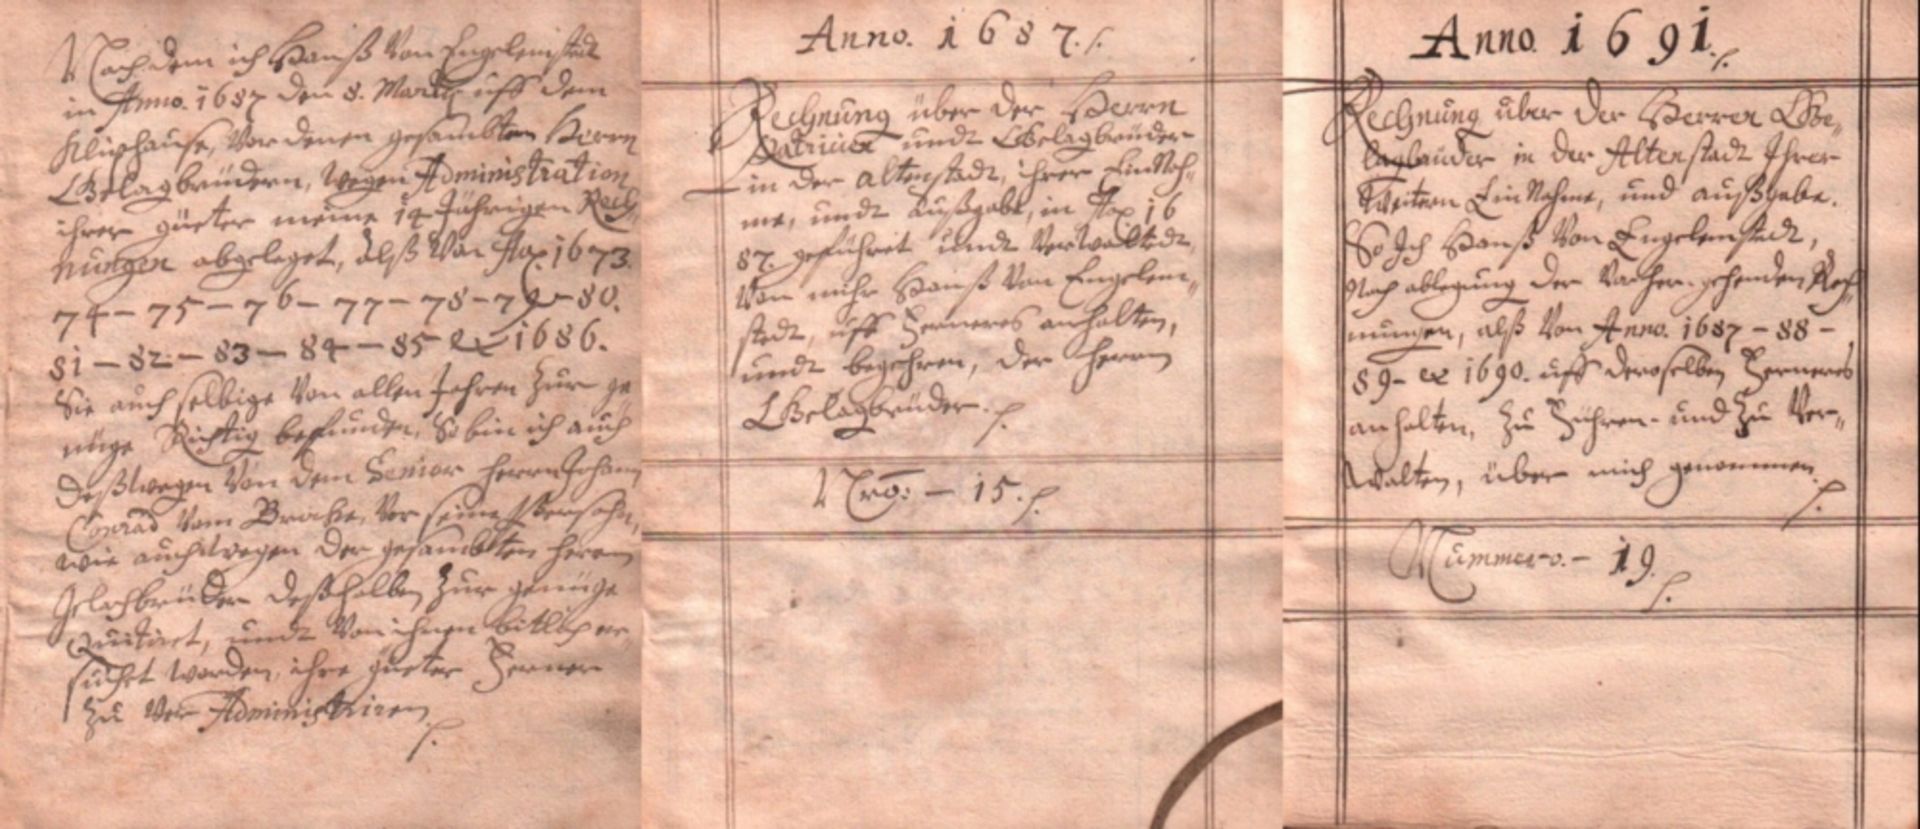 Nach dem ich Hanß Von Engelemstedt
in Anno. 1687 den 8. Marty uff dem
Kluphause, Vor denen gesambten Herrn
Gelagbrüdern, wegen Administration
ihrer güeter meine 14 Jährigen Rech„
nungen abgeleget, alß Von Ao. 1673.
74 – 75 – 76 – 77 – 78 – 79 – 80.
81 – 82 – 83 – 84 – 85 et 1686.
Sie auch selbige Von allen Jahren zur ge
nüge Richtig befunden, So bin ich auch
deßwegen Von dem Senior Herrn Johann
Conrad Vom Broke, Vor seine Persohn,
wie auch wegen der gesambten Herrn
Gelachbrüder deßhalben zur genüge
quitiret, undt Von ihnen bitlich er„
sucht worden, ihre güeter Ferner
zu Ver Administriren.
Anno. 1687.
Rechnung über der Herrn
Patricier undt Gelagbrüder
in der altenstadt, ihrer EinNah„
me, undt Außgabe, in Ao. 16
87. geführet undt Verwaltedt,
Von mihr Hanß Von Engelem„
stedt, uff Ferneres anhalten,
undt begehren, der Herrn
Gelagbrüder.
Nro: – 15.
Anno 1691.
Rechnung über der Herren Ge„
lagbrüder in der Altenstadt Ihrer
Weitern EinNahme, und außgabe.
So Ich Hanß Von Engelemstedt,
Nach ablegung der Vorher gehenden Rech„
nungen, alß Von Anno. 1687 – 88 –
89 – et 1690. uff deroselben Ferneres
anhalten, zu Führen und zu Ver„
walten, über mich genommen.
Nummero. – 19.